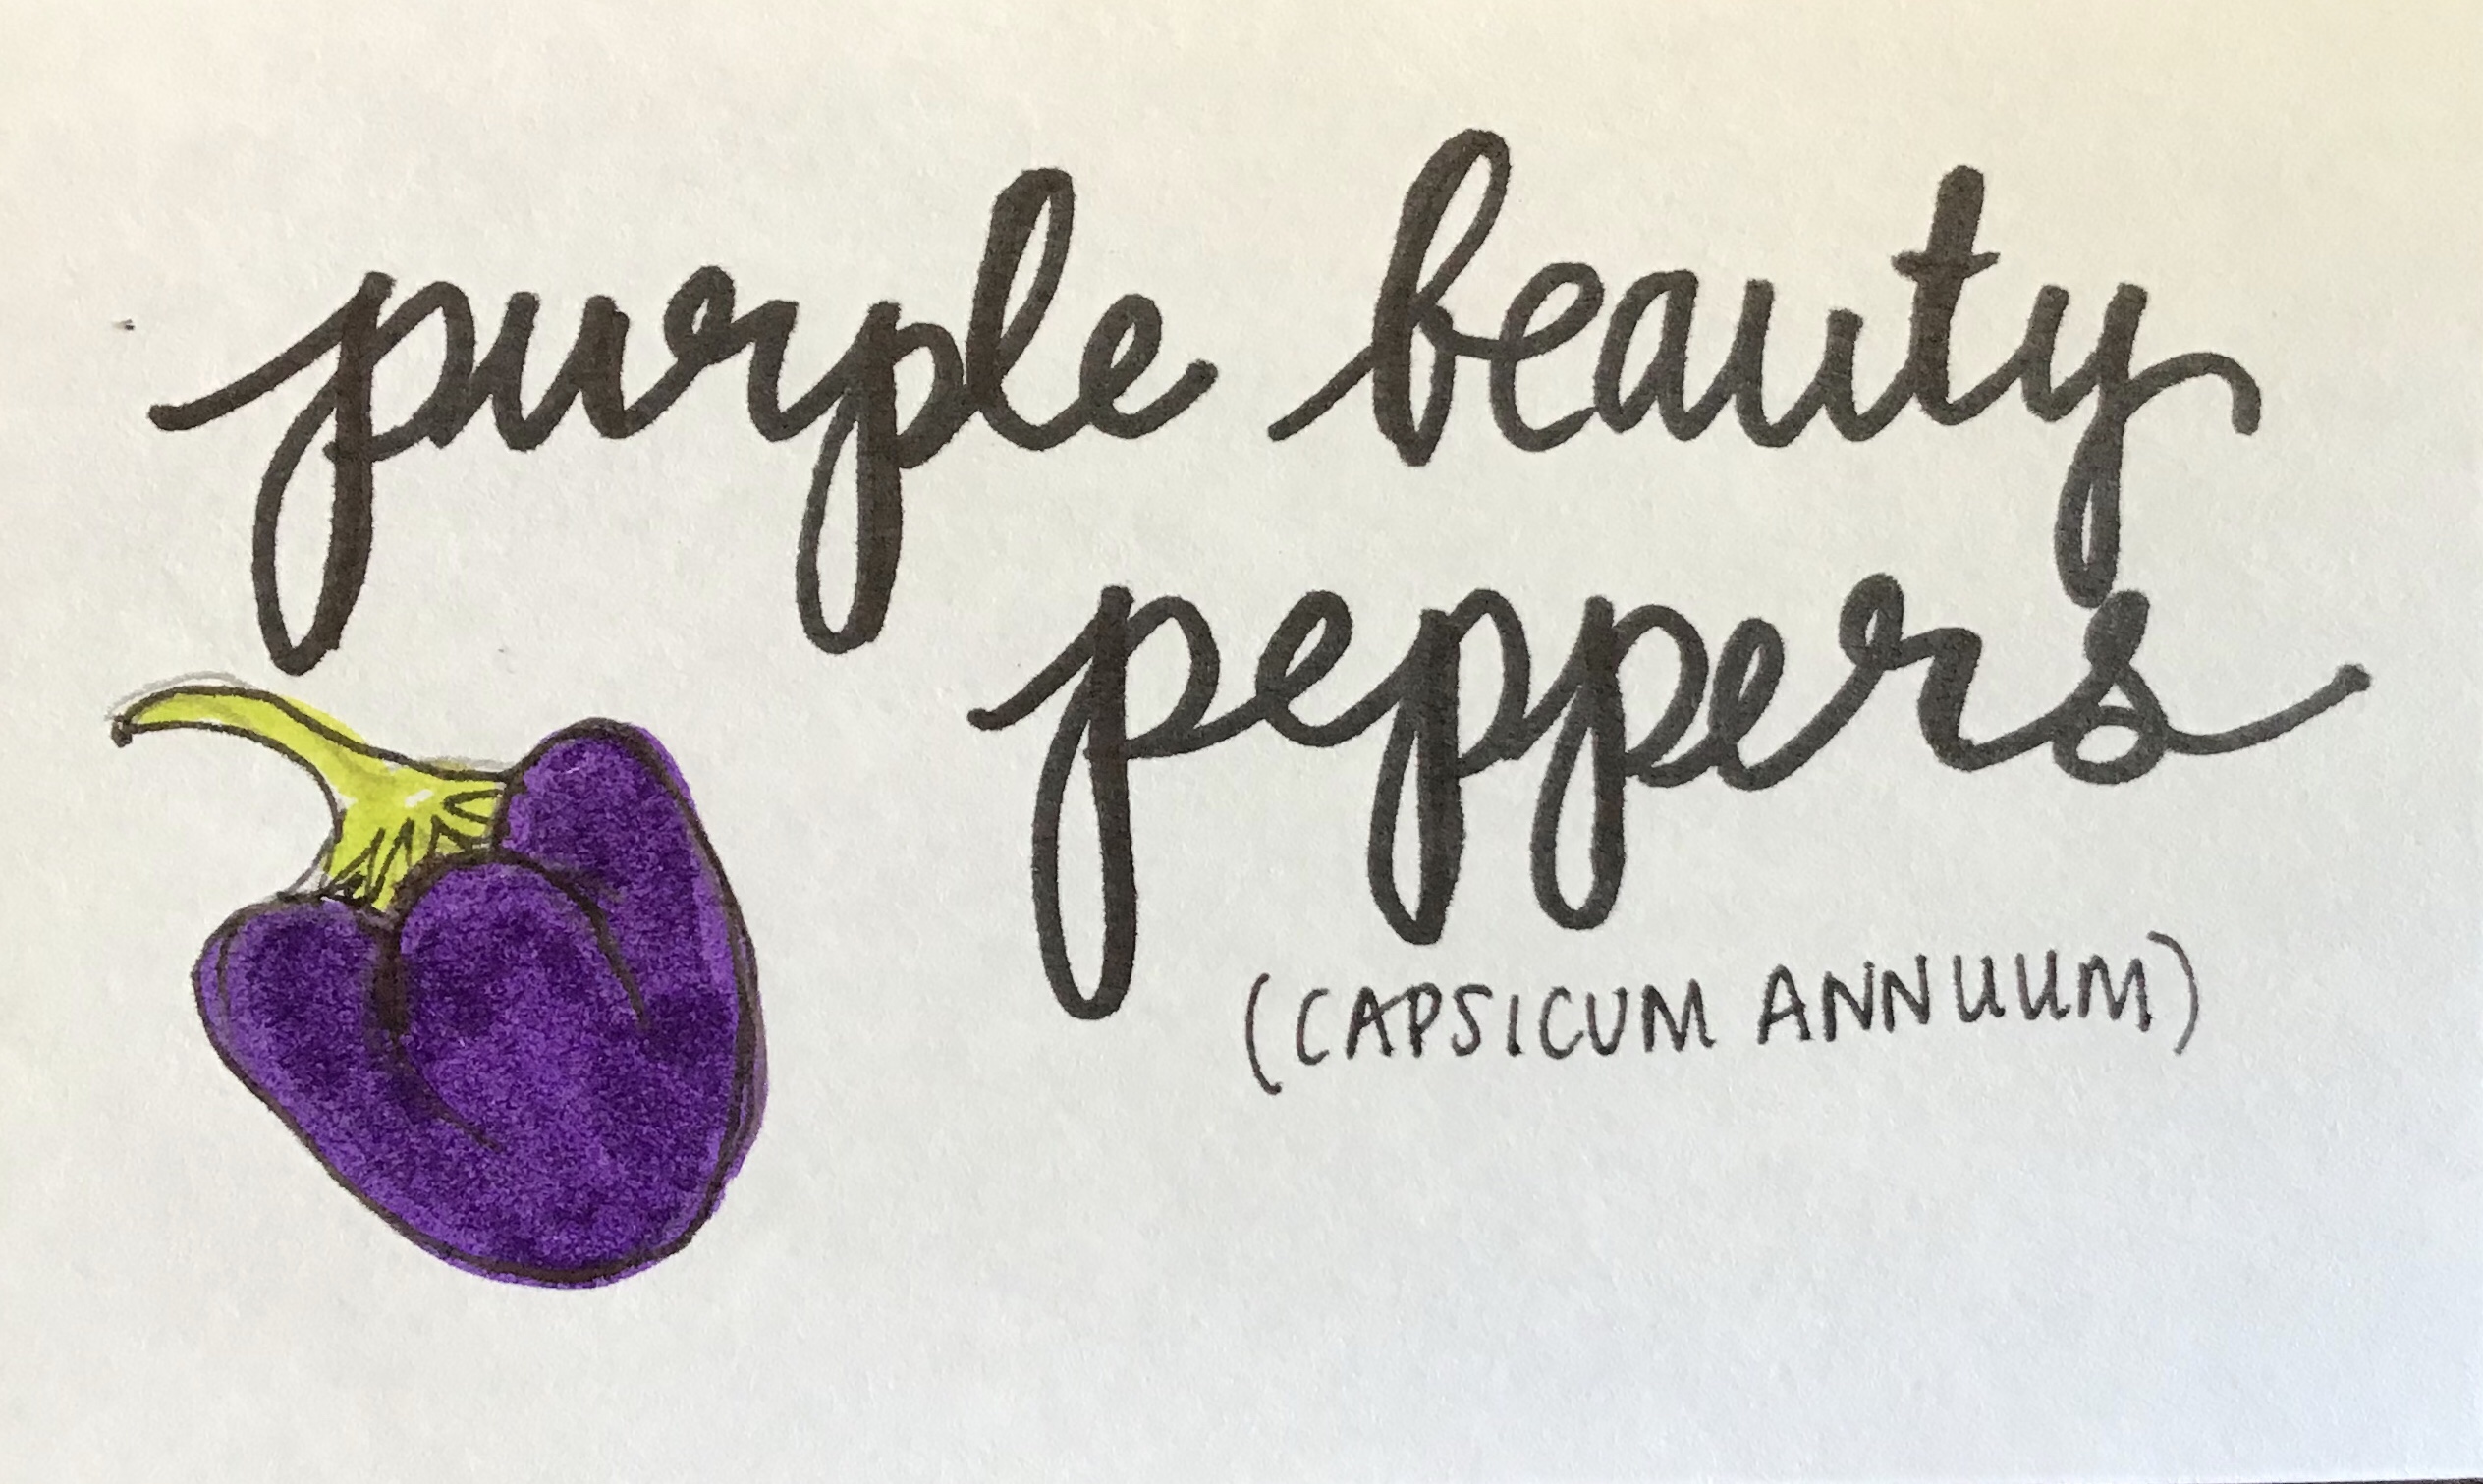 purple beauty
peppers
(CAPSICUM ANNUUM)